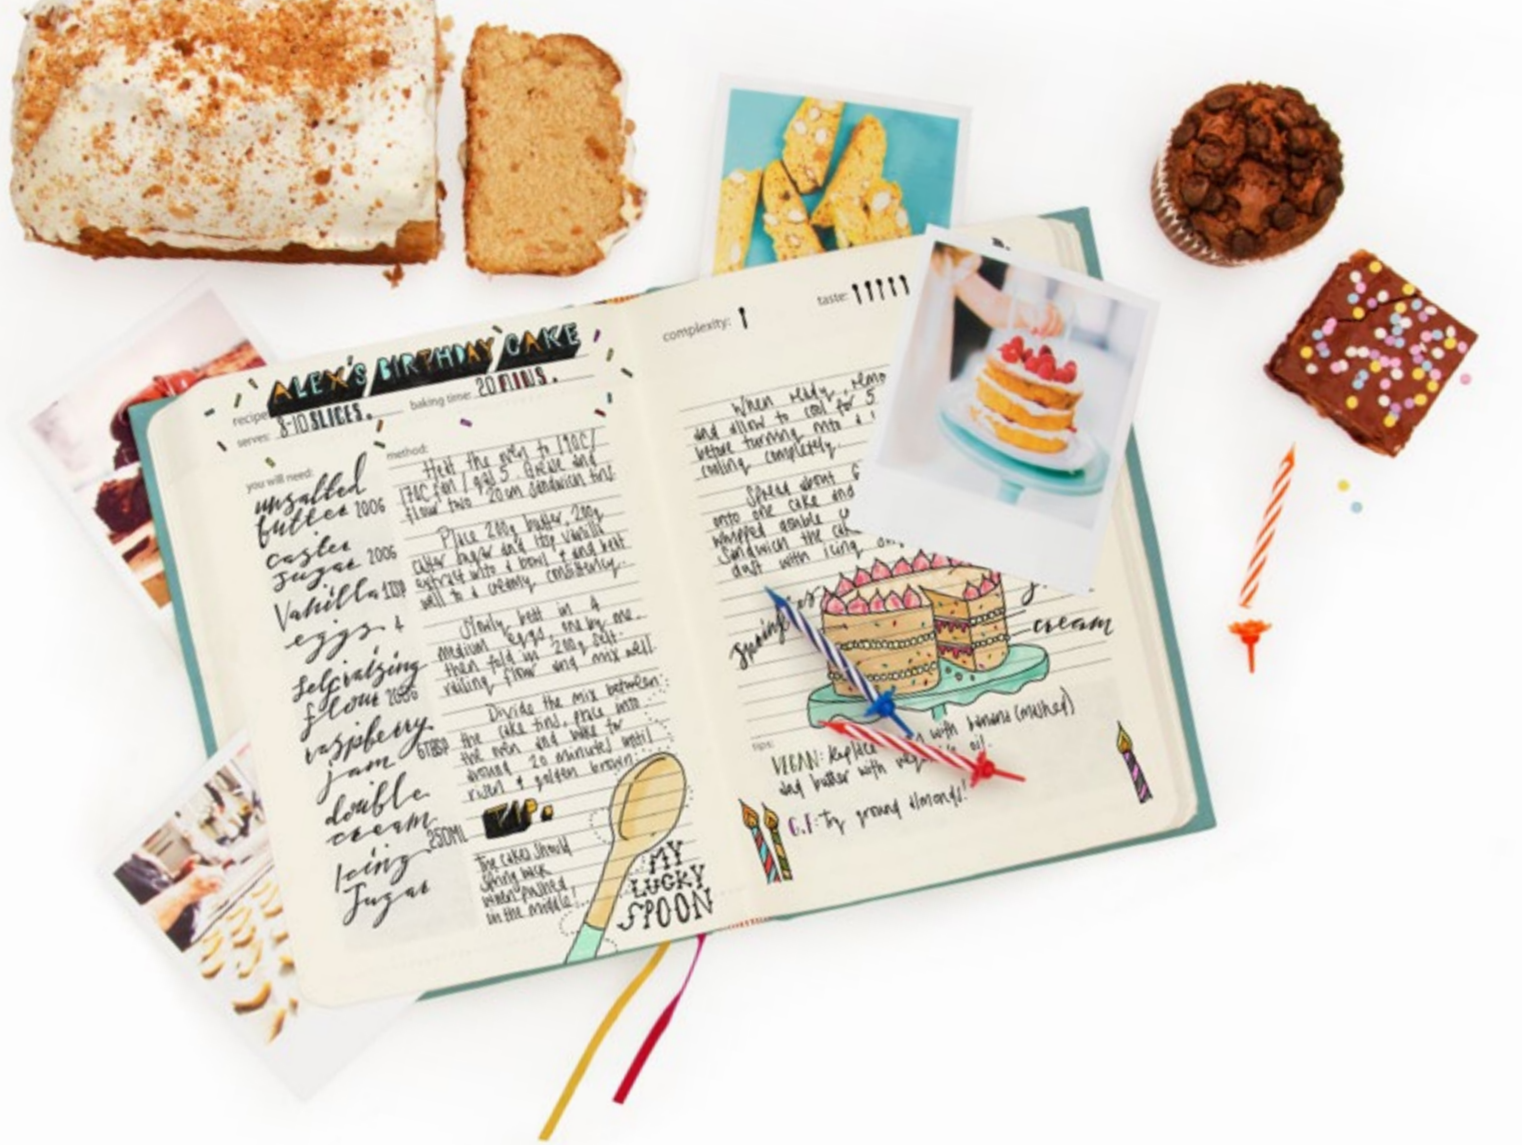 ALEX'S BIRTHDAY CAKE
recipe:
serves: 8-10 SLICES.
baking time: 20 MINS.
you will need:
unsalted
butter 200G
caster
sugar 200G
Vanilla 1TSP
eggs 4
selfraising
flour 200G
raspberry
jam 6TBSP
double
cream 250ML
Icing
Sugar
method:
Heat the oven to 190C/
170C fan/gas 5. Grease and
flour two 20cm sandwich tins.
Place 200g butter, 200g
caster sugar and 1tsp vanilla
extract into a bowl and beat
well to a creamy consistency.
Slowly beat in 4
medium eggs, one by one.
then fold in 200g self-
raising flour and mix well.
Divide the mix between
the cake tins, place into
the oven and bake for
around 20 minutes until
risen & golden brown.
TIP:
The cakes should
spring back
when pushed
in the middle!
MY
LUCKY
SPOON
complexity:
taste:
When ready, remo
and allow to cool for 5
before turning onto a
cooling completely.
Spread about
onto one cake and
whipped double
Sandwich the cak
dust with icing
cream
tips:
VEGAN: Replace with banana (mashed)
and butter with oil.
G.F: Try ground almonds!